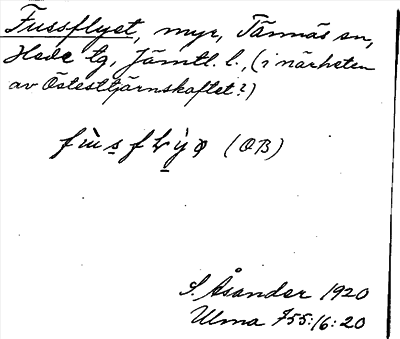 Fussflyet, myr, Tännäs sn,
Hede tg, Jämtl. l., (i närheten
av Östesttjärnskaftet?)
(OB)
S. Åsander 1920
Ulma 755:16:20